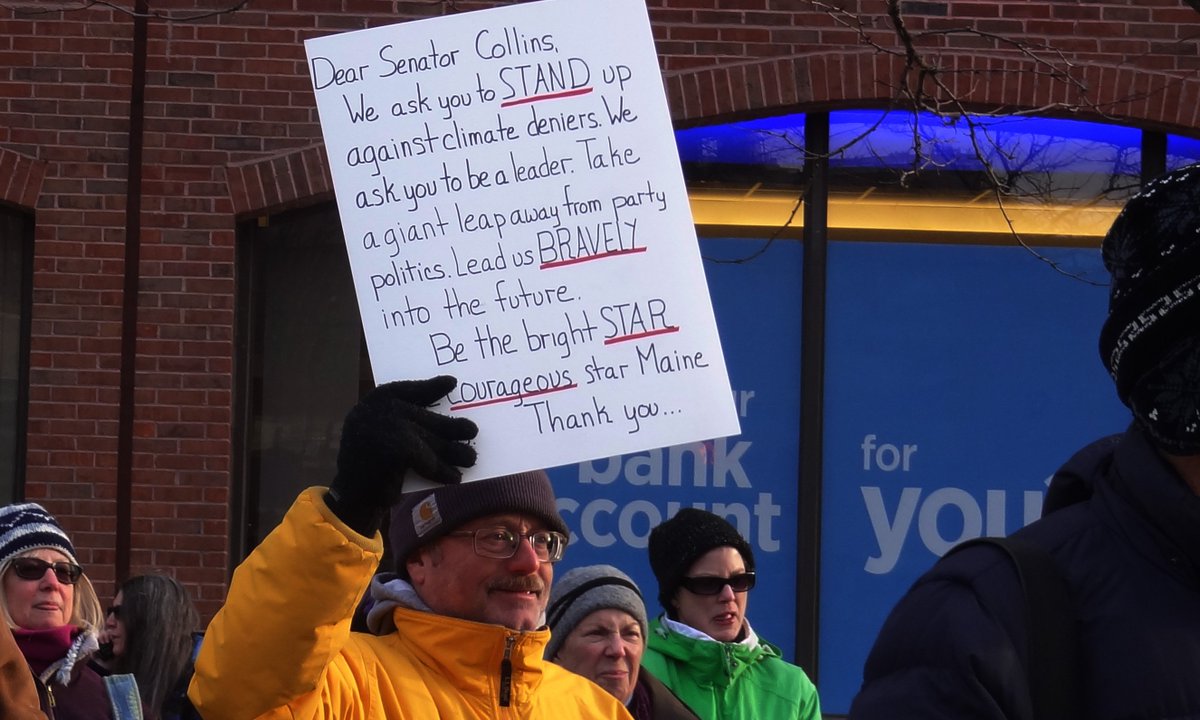 Dear Senator Collins,
We ask you to STAND up
against climate deniers. We
ask you to be a leader. Take
a giant leap away from party
politics. Lead us BRAVELY
into the future.
Be the bright STAR
courageous star Maine
Thank you...
bank
ccount
for
you